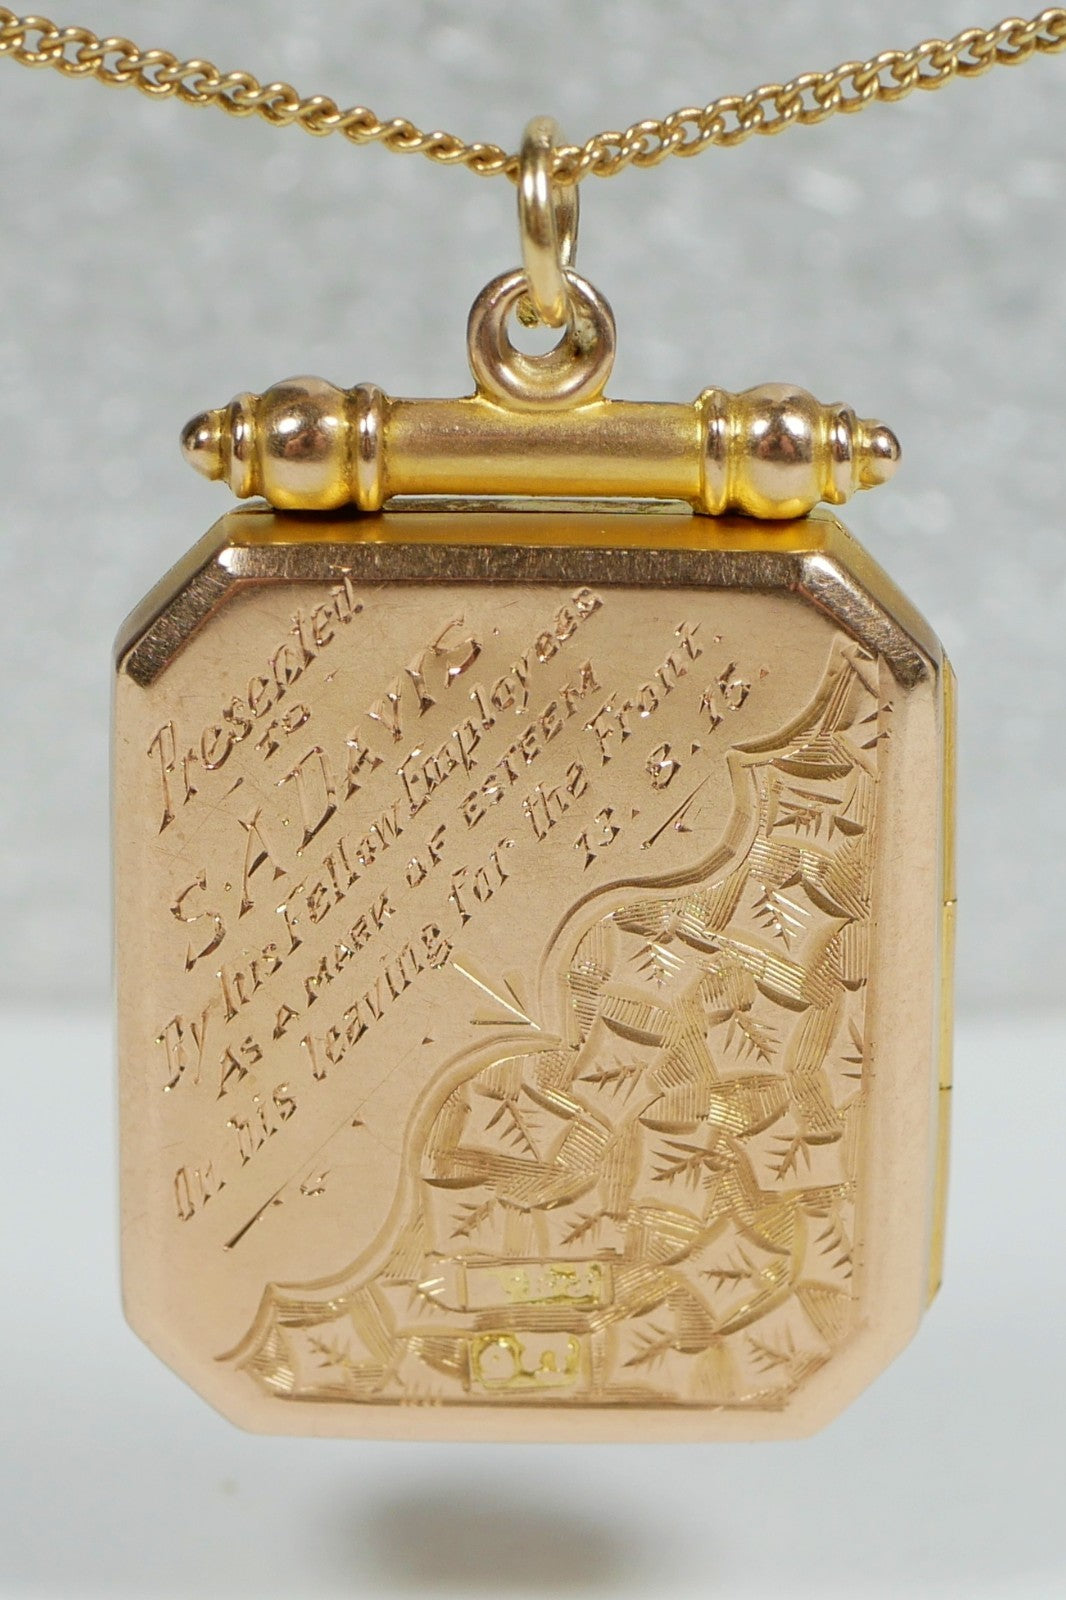 Presented
TO
S. A. DAVIS.
By his Fellow Employees
AS A MARK OF ESTEEM
On his leaving for the Front.
13. 8. 15.